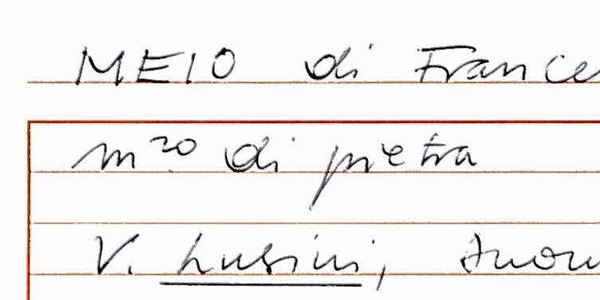 MEIO di France
m^ro di pietra
V. Lusini,